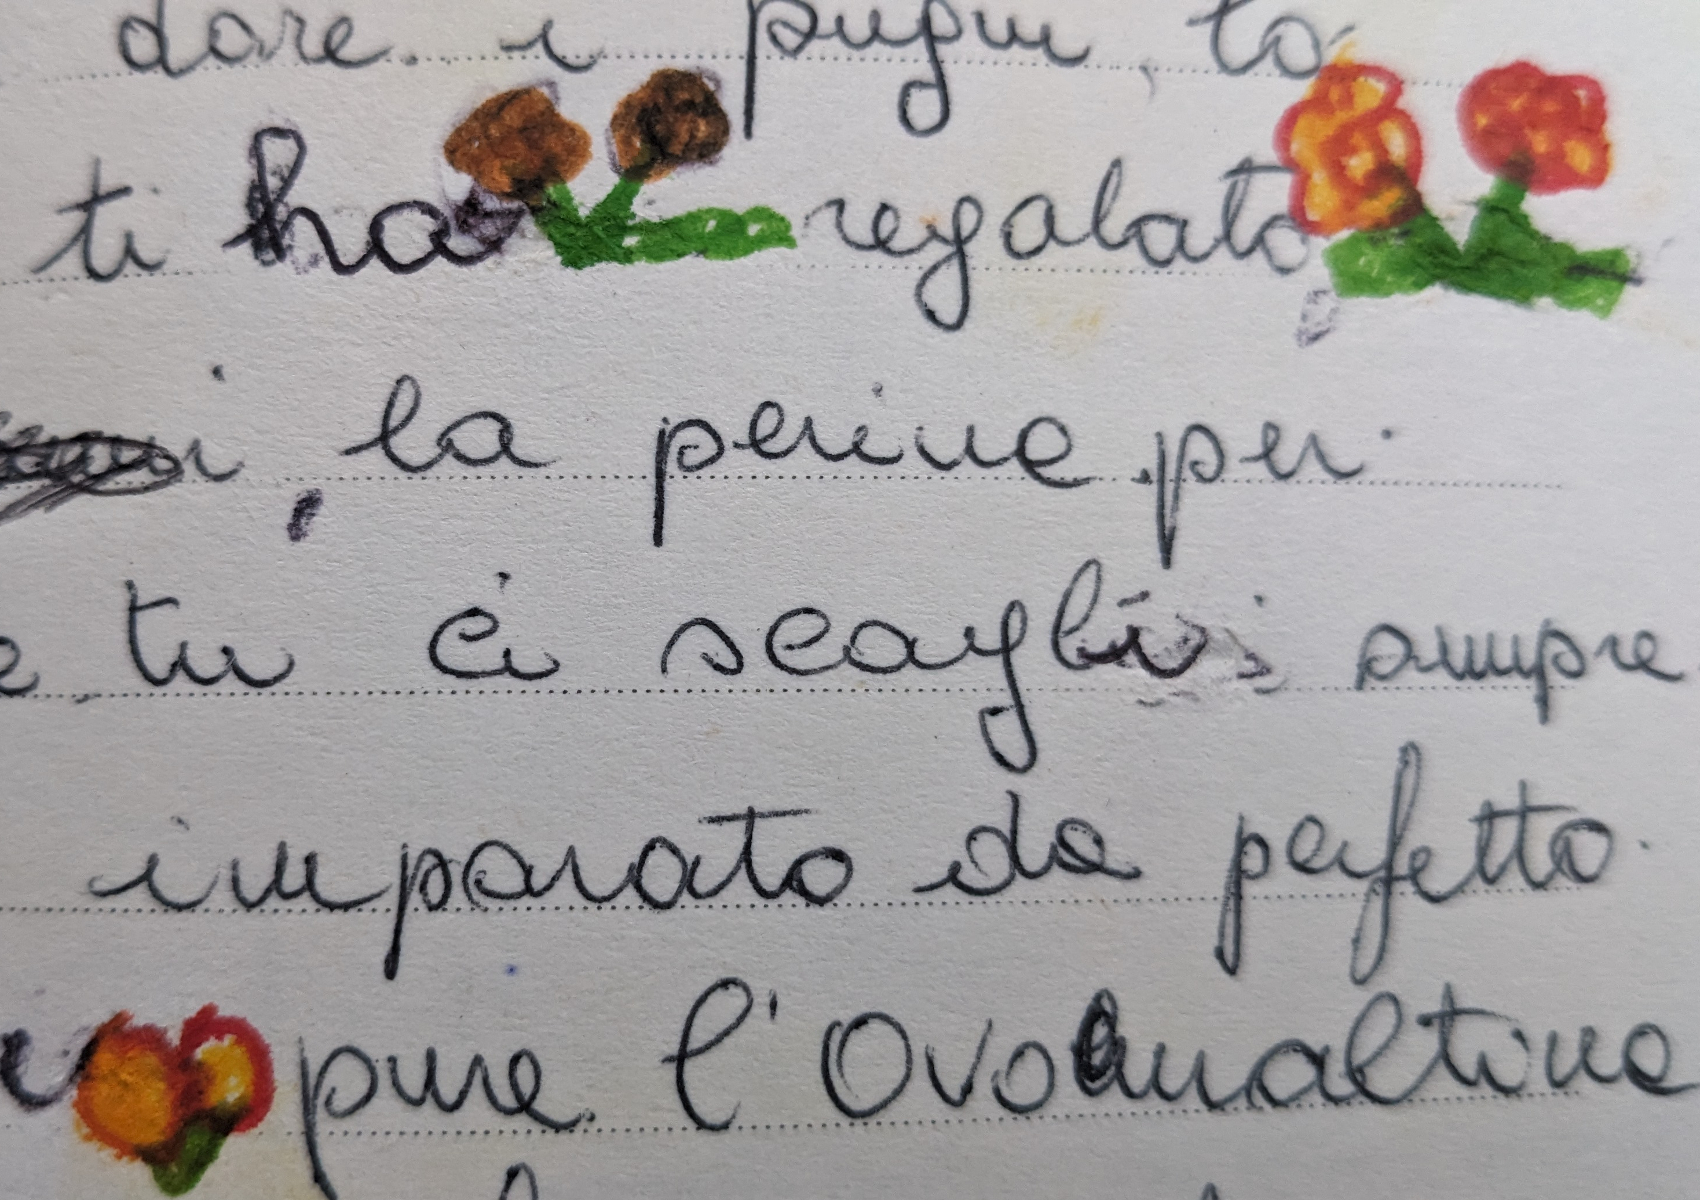 dare i pugni, to
ti ha regalato
la penna per
e tu ci scagli sempre
imparato da perfetto
pure l'Ovomaltina